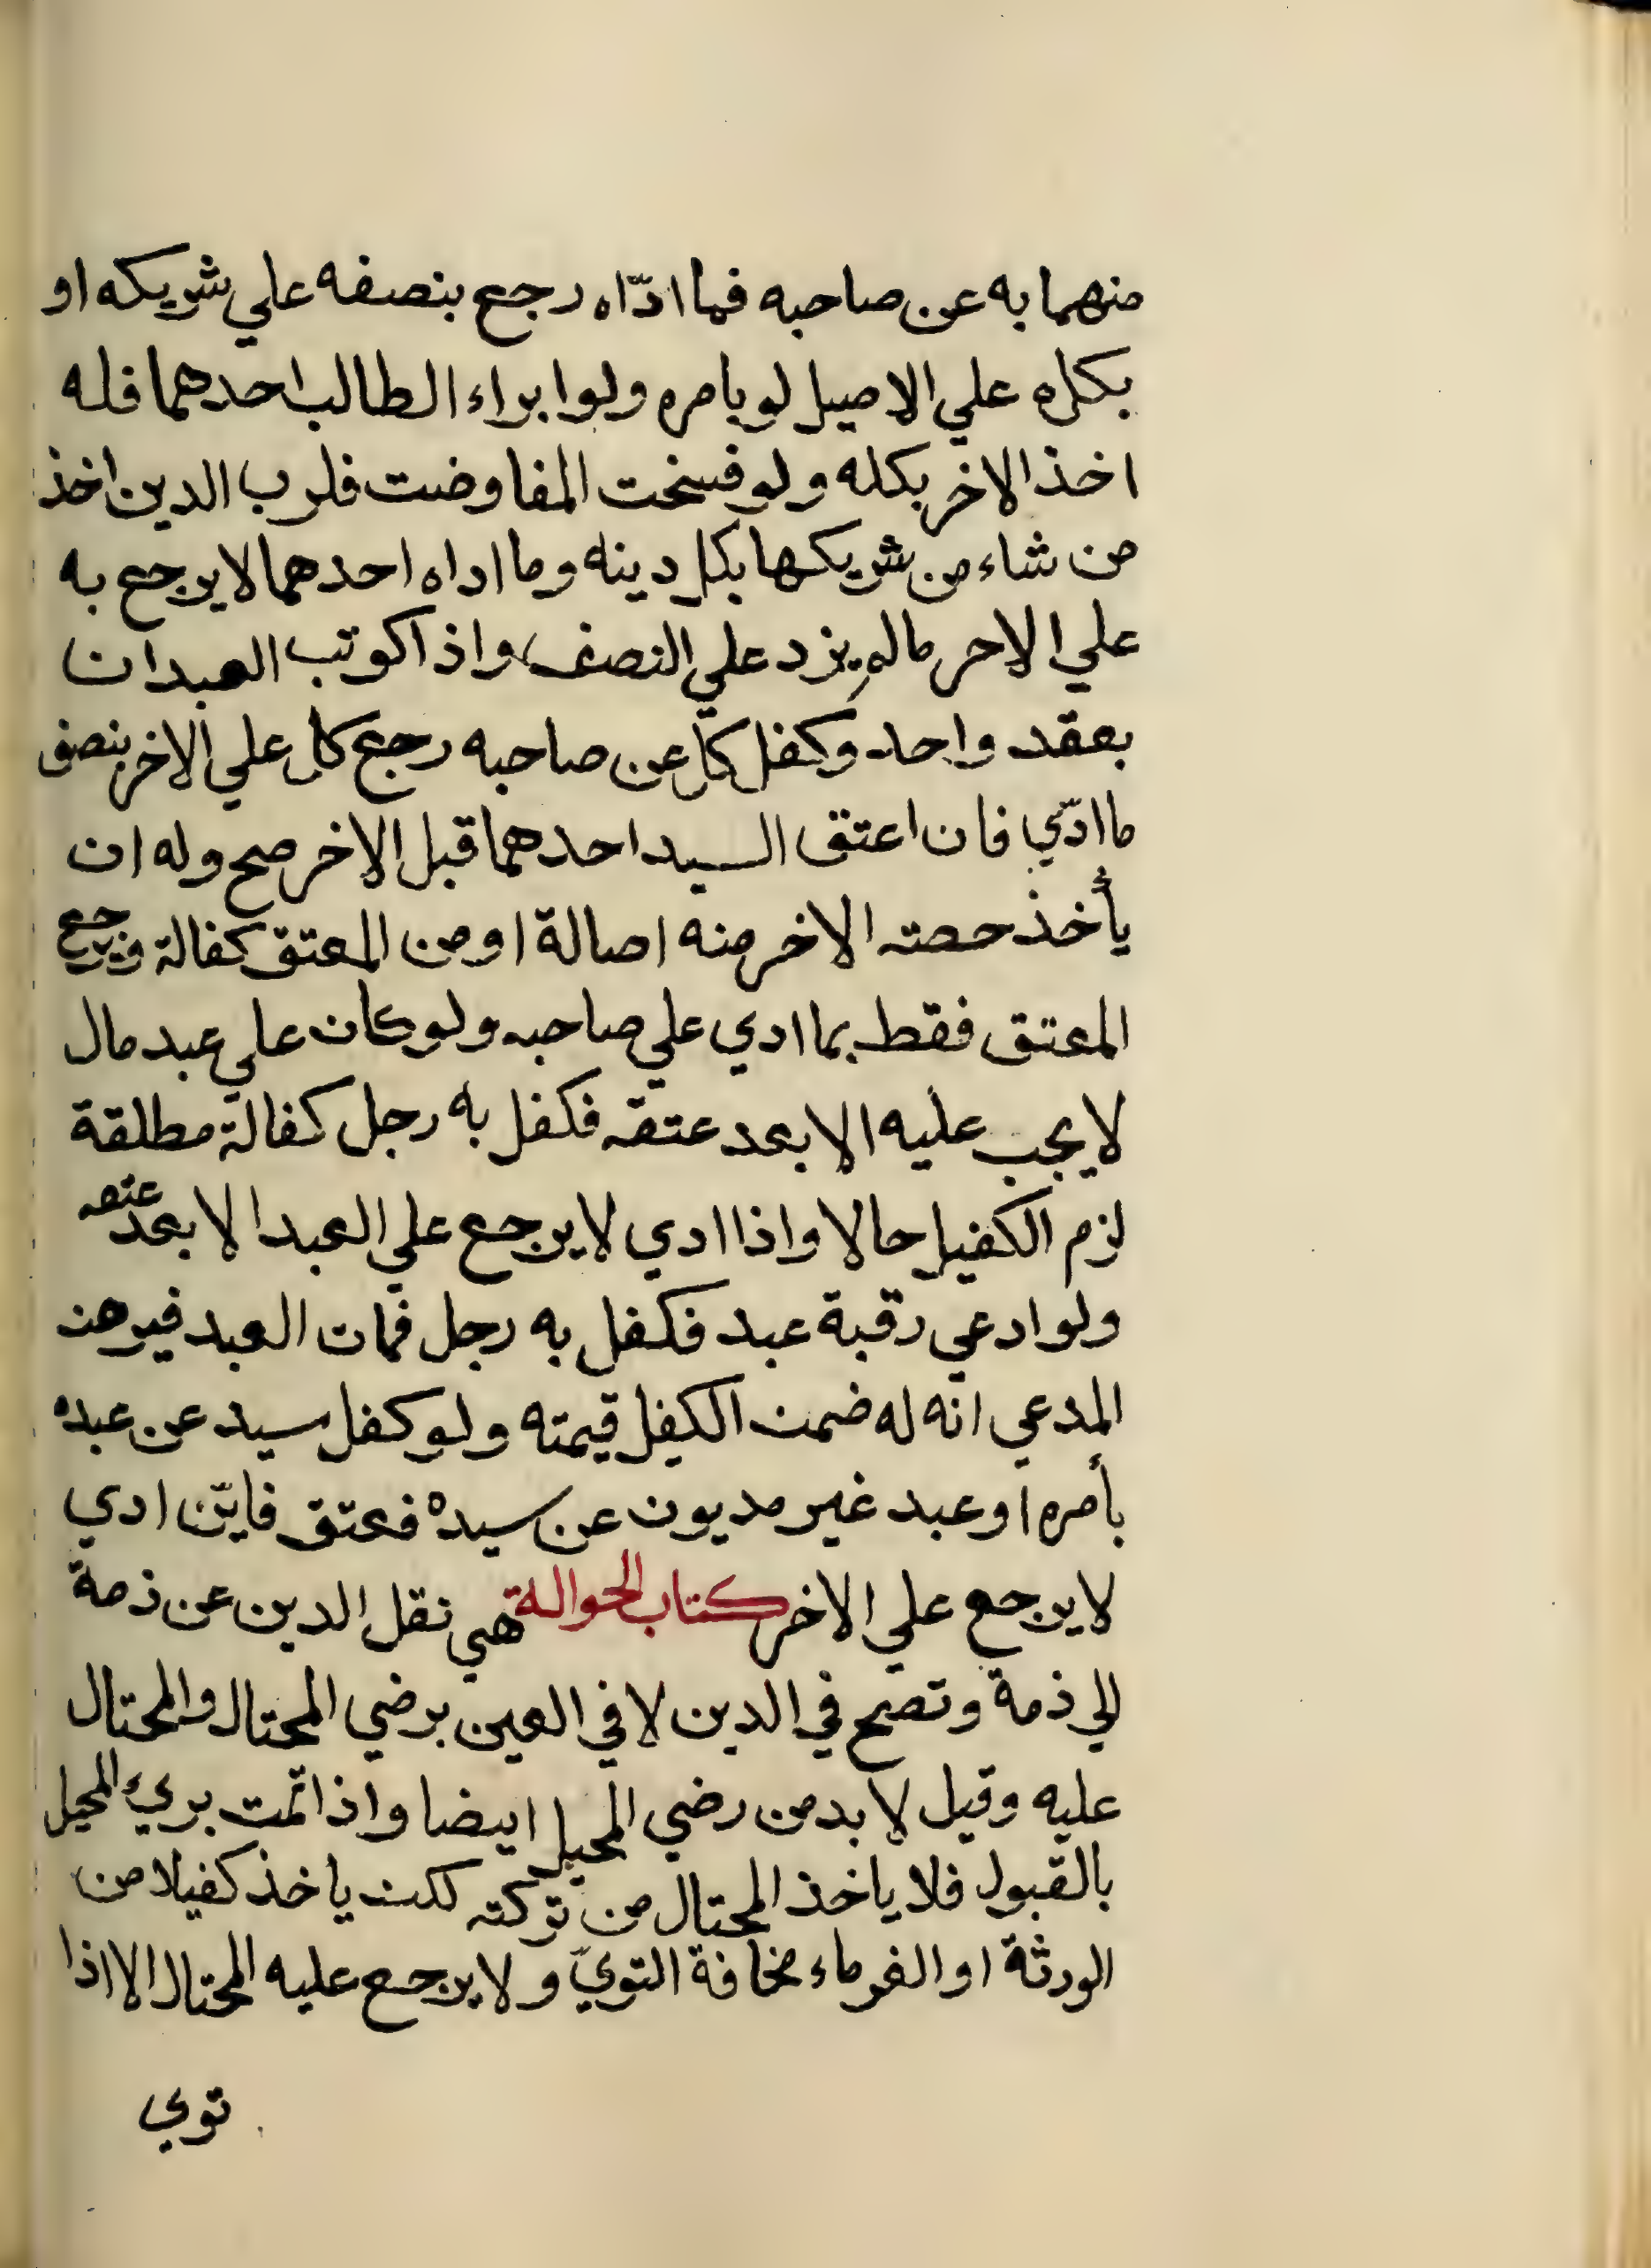 منهما به عن صاحبه فما ادّاه رجع بنصفه علي شريكه او
بكله علي الاصيل لو بامره ولو ابراء الطالب احدهما فله
اخذ الاخر بكله ولو فسخت المفاوضت فلرب الدين اخذ
من شاء من شريكها بكل دينه وما اداه احدهما لا يرجع به
علي الاحر مالم يزد علي النصف واذا كوتب العبدان
بعقد واحد وكفل كل عن صاحبه رجع كل علي الاخر بنصف
ما ادّي فان اعتق السيد احدهما قبل الاخر صح وله ان
يأخذ حصته الاخر منه اصالة او من المعتق كفالة ويرجع
المعتق فقط بما ادي علي صاحبه ولو كان علي عبد مال
لا يجب عليه الا بعد عتقه فكفل به رجل كفالة مطلقة
لزم الكفيل حالا واذا ادي لا يرجع علي العبد الا بعد عتقه
ولو ادعي رقبة عبد فكفل به رجل فمات العبد فبرهن
المدعي انه له ضمن الكفيل قيمته ولو كفل سيد عن عبده
بأمره او عبد غير مديون عن سيده فعتق فايّن ادي
لا يرجع علي الاخر كتاب الحوالة هي نقل الدين عن ذمة
الي ذمة وتصح في الدين لا في العين برضي المحتال والمحتال
عليه وقيل لا بد من رضي المحيل ايضا واذا تمّت بريء المحيل
بالقبول فلا ياخذ المحتال من تركته لكن ياخذ كفيلا من
الورثة او الغرماء مخافة التويّ ولا يرجع عليه المحتال الا اذا
توي